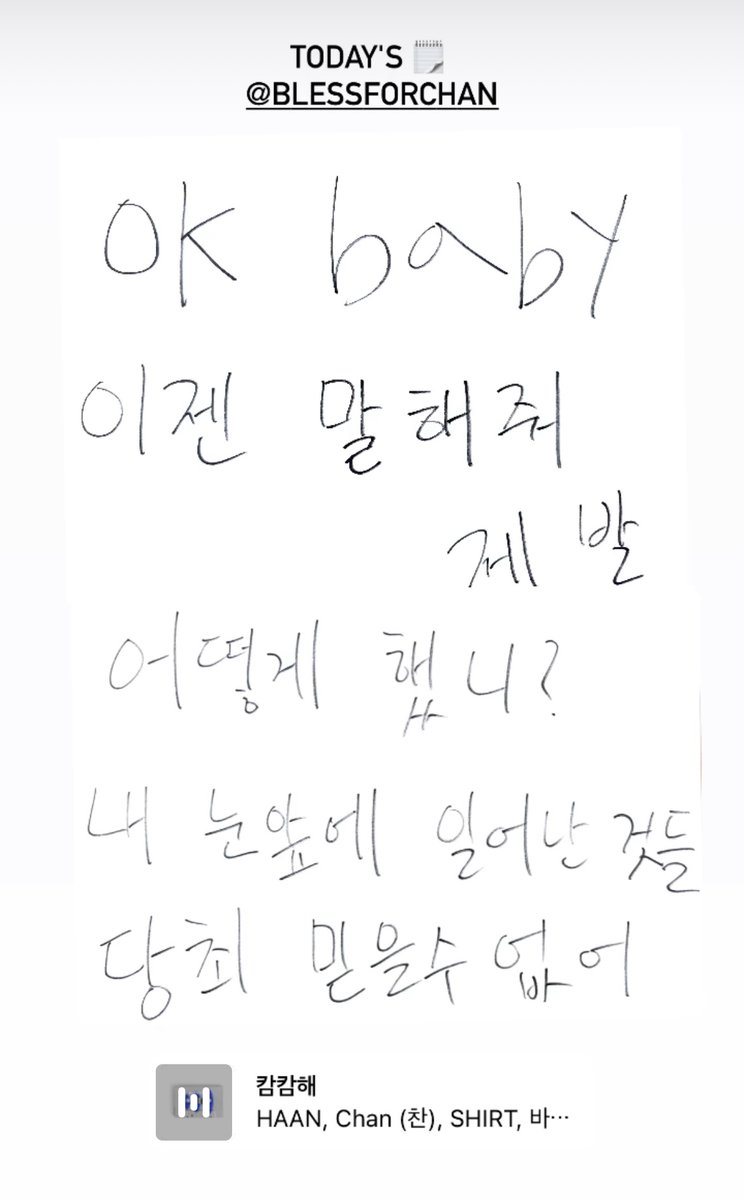 TODAY'S
@BLESSFORCHAN
OK baby
이젠 말해줘
제발
어떻게 했니?
내 눈앞에 일어난 것들
당최 믿을수 없어
캄캄해
HAAN, Chan (찬), SHIRT, 바…